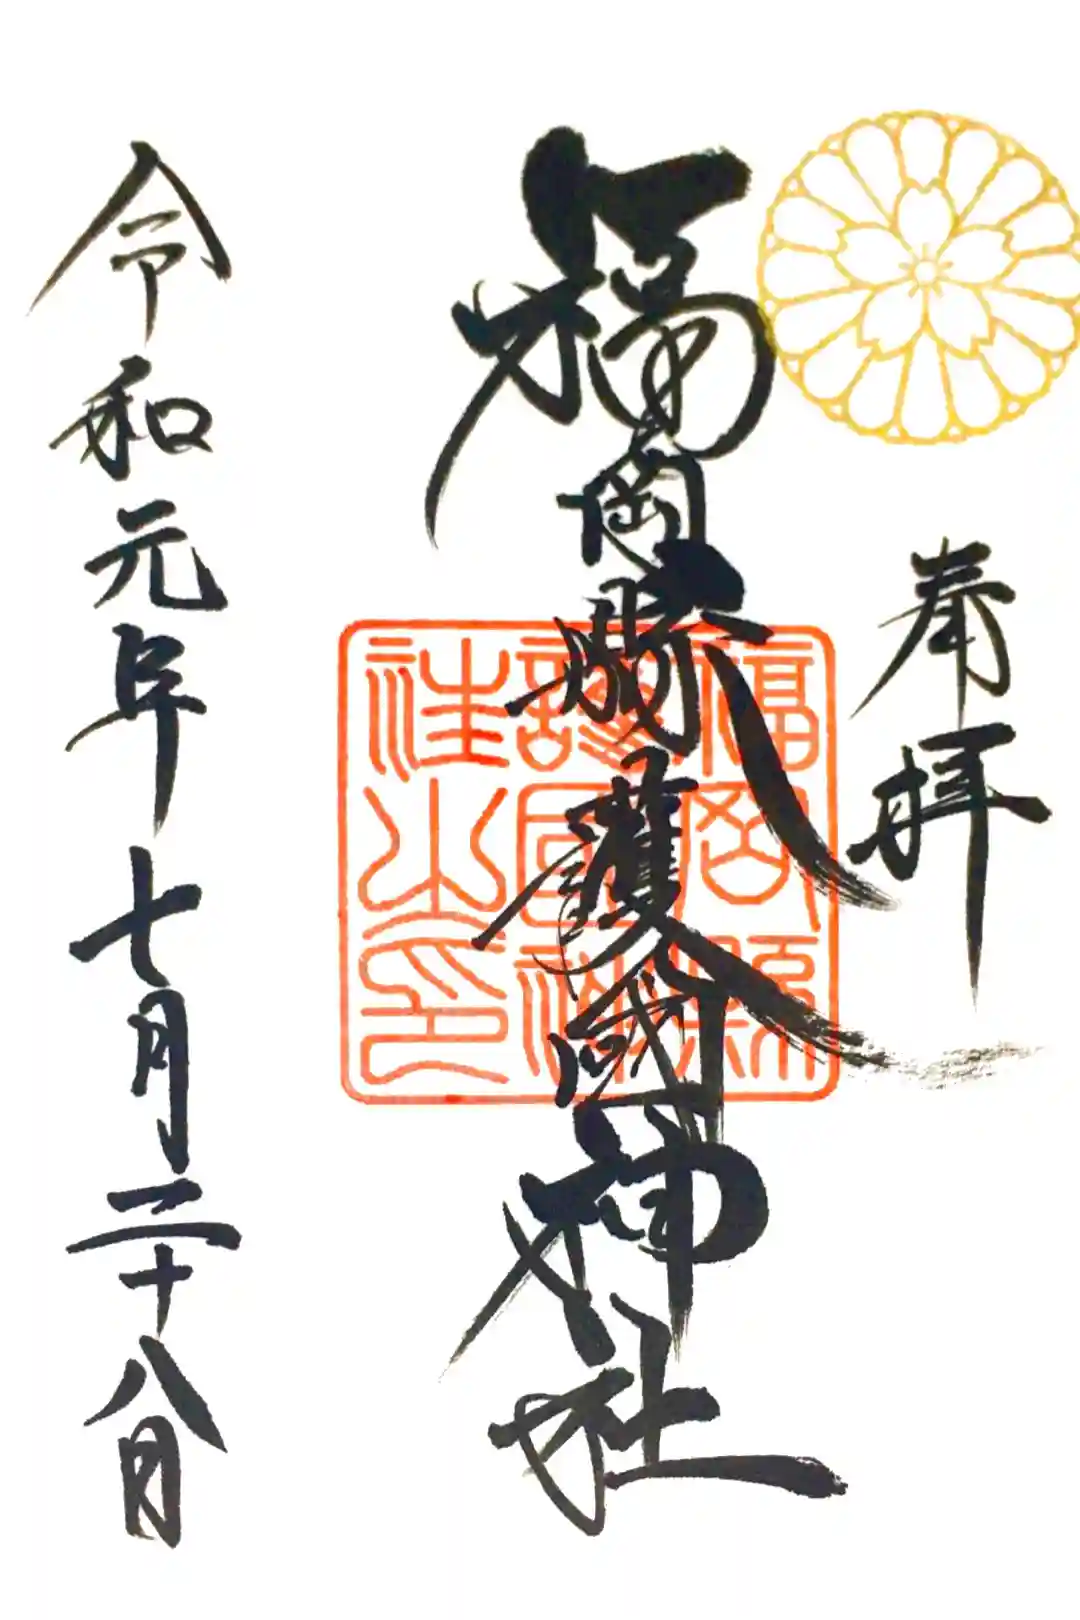 奉拝
福岡縣護國神社
福岡縣
護国神
社之印
令和元年七月二十八日